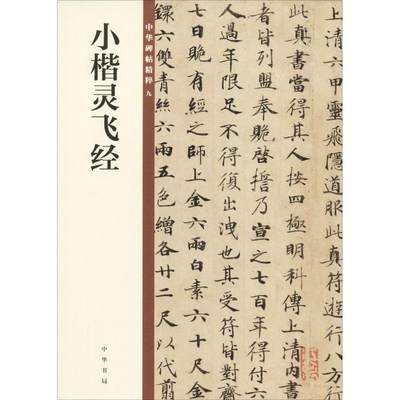 小楷灵飞经
中华碑帖精粹 九
中华书局
上清六甲靈飛隱道服此真符遊行八方行
此真書當得其人按四極明科傳上清内書
者皆列盟奉貺啓擔乃宣之七百年得付六
人過年限足不得復出洩也其受符皆對齋
七日貺有經之師上金六兩白素六十尺金
鐶六雙青絲六兩五色繒各廿二尺以代翦